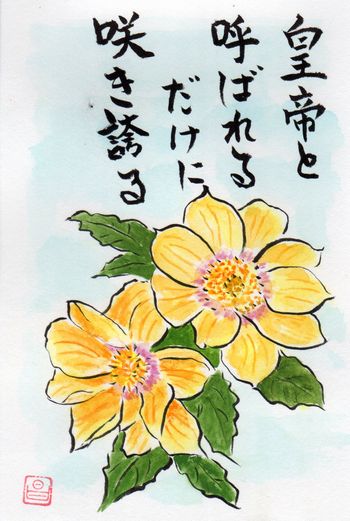 皇帝と
呼ばれる
だけに
咲き誇る